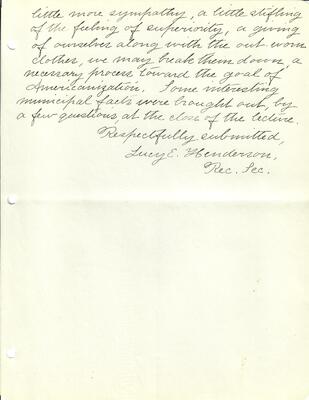 little more sympathy, a little stifling
of the feeling of superiority, a giving
of ourselves along with the out-worn
clothes, we may break them down, a
necessary process toward the goal of
Americanization. Some interesting
municipal facts were brought out, by
a few questions, at the close of the lecture.
Respectfully submitted,
Lucy E. Henderson,
Rec. Sec.